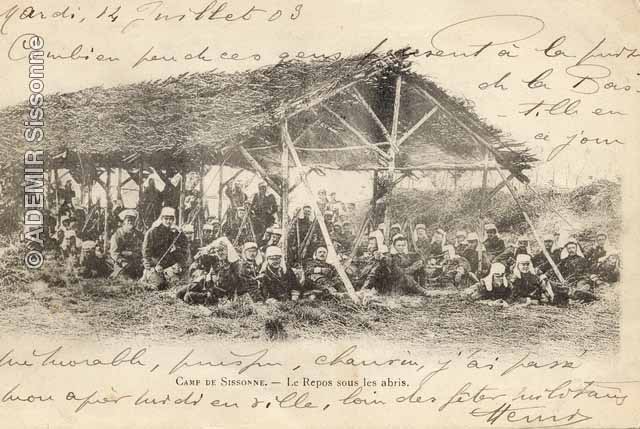 Mardi, 14 Juillet 03
Combien peu de ces gens pensent à la prise
de la Bas-
tille en
ce jour
© ADEMIR Sissonne
mémorable, puisqu', chauvin, j'ai passé
CAMP DE SISSONNE. — LE REPOS SOUS LES ABRIS.
mon après midi en ville, loin des fêtes militaires
Henri